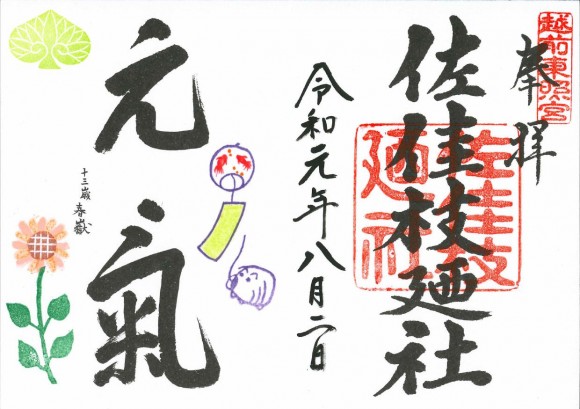 越前東照宮
奉拝
佐佳枝廼社
佐佳枝
廼社
令和元年八月二日
元氣
十三歳 春嶽